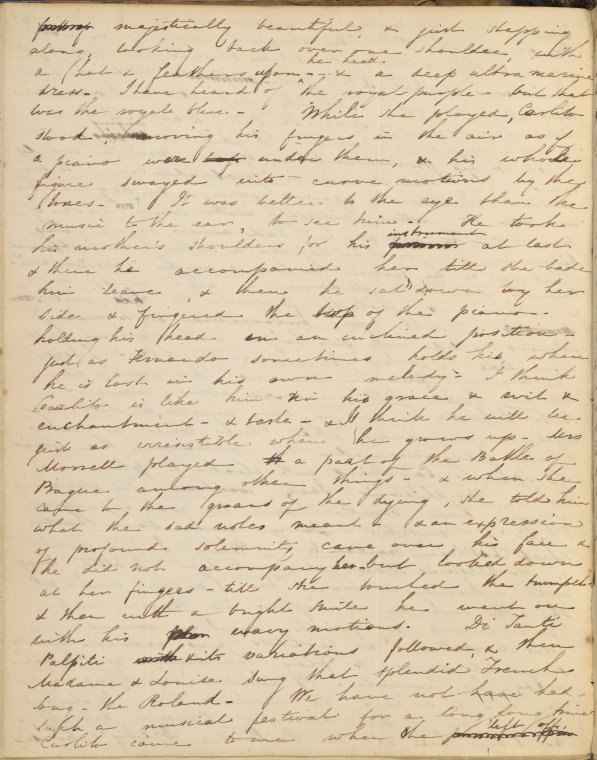 majestically beautiful, & just stepping
along, looking back over one shoulder, with
a hat & feathers upon the head - & a deep ultra marine
dress - I have heard of the royal purple - but that
was the royale blue. - While she played, Carlito
stood, moving his fingers in the air as if
a piano were under them, & his whole
figure swayed into curve motions by the
tones - It was better to the eye than the
NYPL
music to the ear, to see him - He took
his mother's shoulders for his instrument at last
& there he accompanied her till she bade
him leave, & then he sat down by her
side & fingered the top of the piano -
holding his head in an inclined position -
just as Fernando sometimes holds his, when
he is lost in his own melody - I think
Carlito is like him in his grace & wit &
enchantment - & taste - & I think he will be
just as irresistible when he grows up - Mrs
Morrell played a part of the Battle of
Prague among other things - & when she
came to the groans of the dying, she told him
what the sad notes meant - & an expression
of profound solemnity came over his face &
he did not accompany her - but looked down
at her fingers - till she touched the trumpets
& then with a bright smile he went on
with his wavy motions. Di Tanti
Palpiti & its variations followed, & then
Madame & Louisa sung that splendid French
song - the Roland - We have not have had
such a musical festival for a long long time
Carlito came to me when she left off